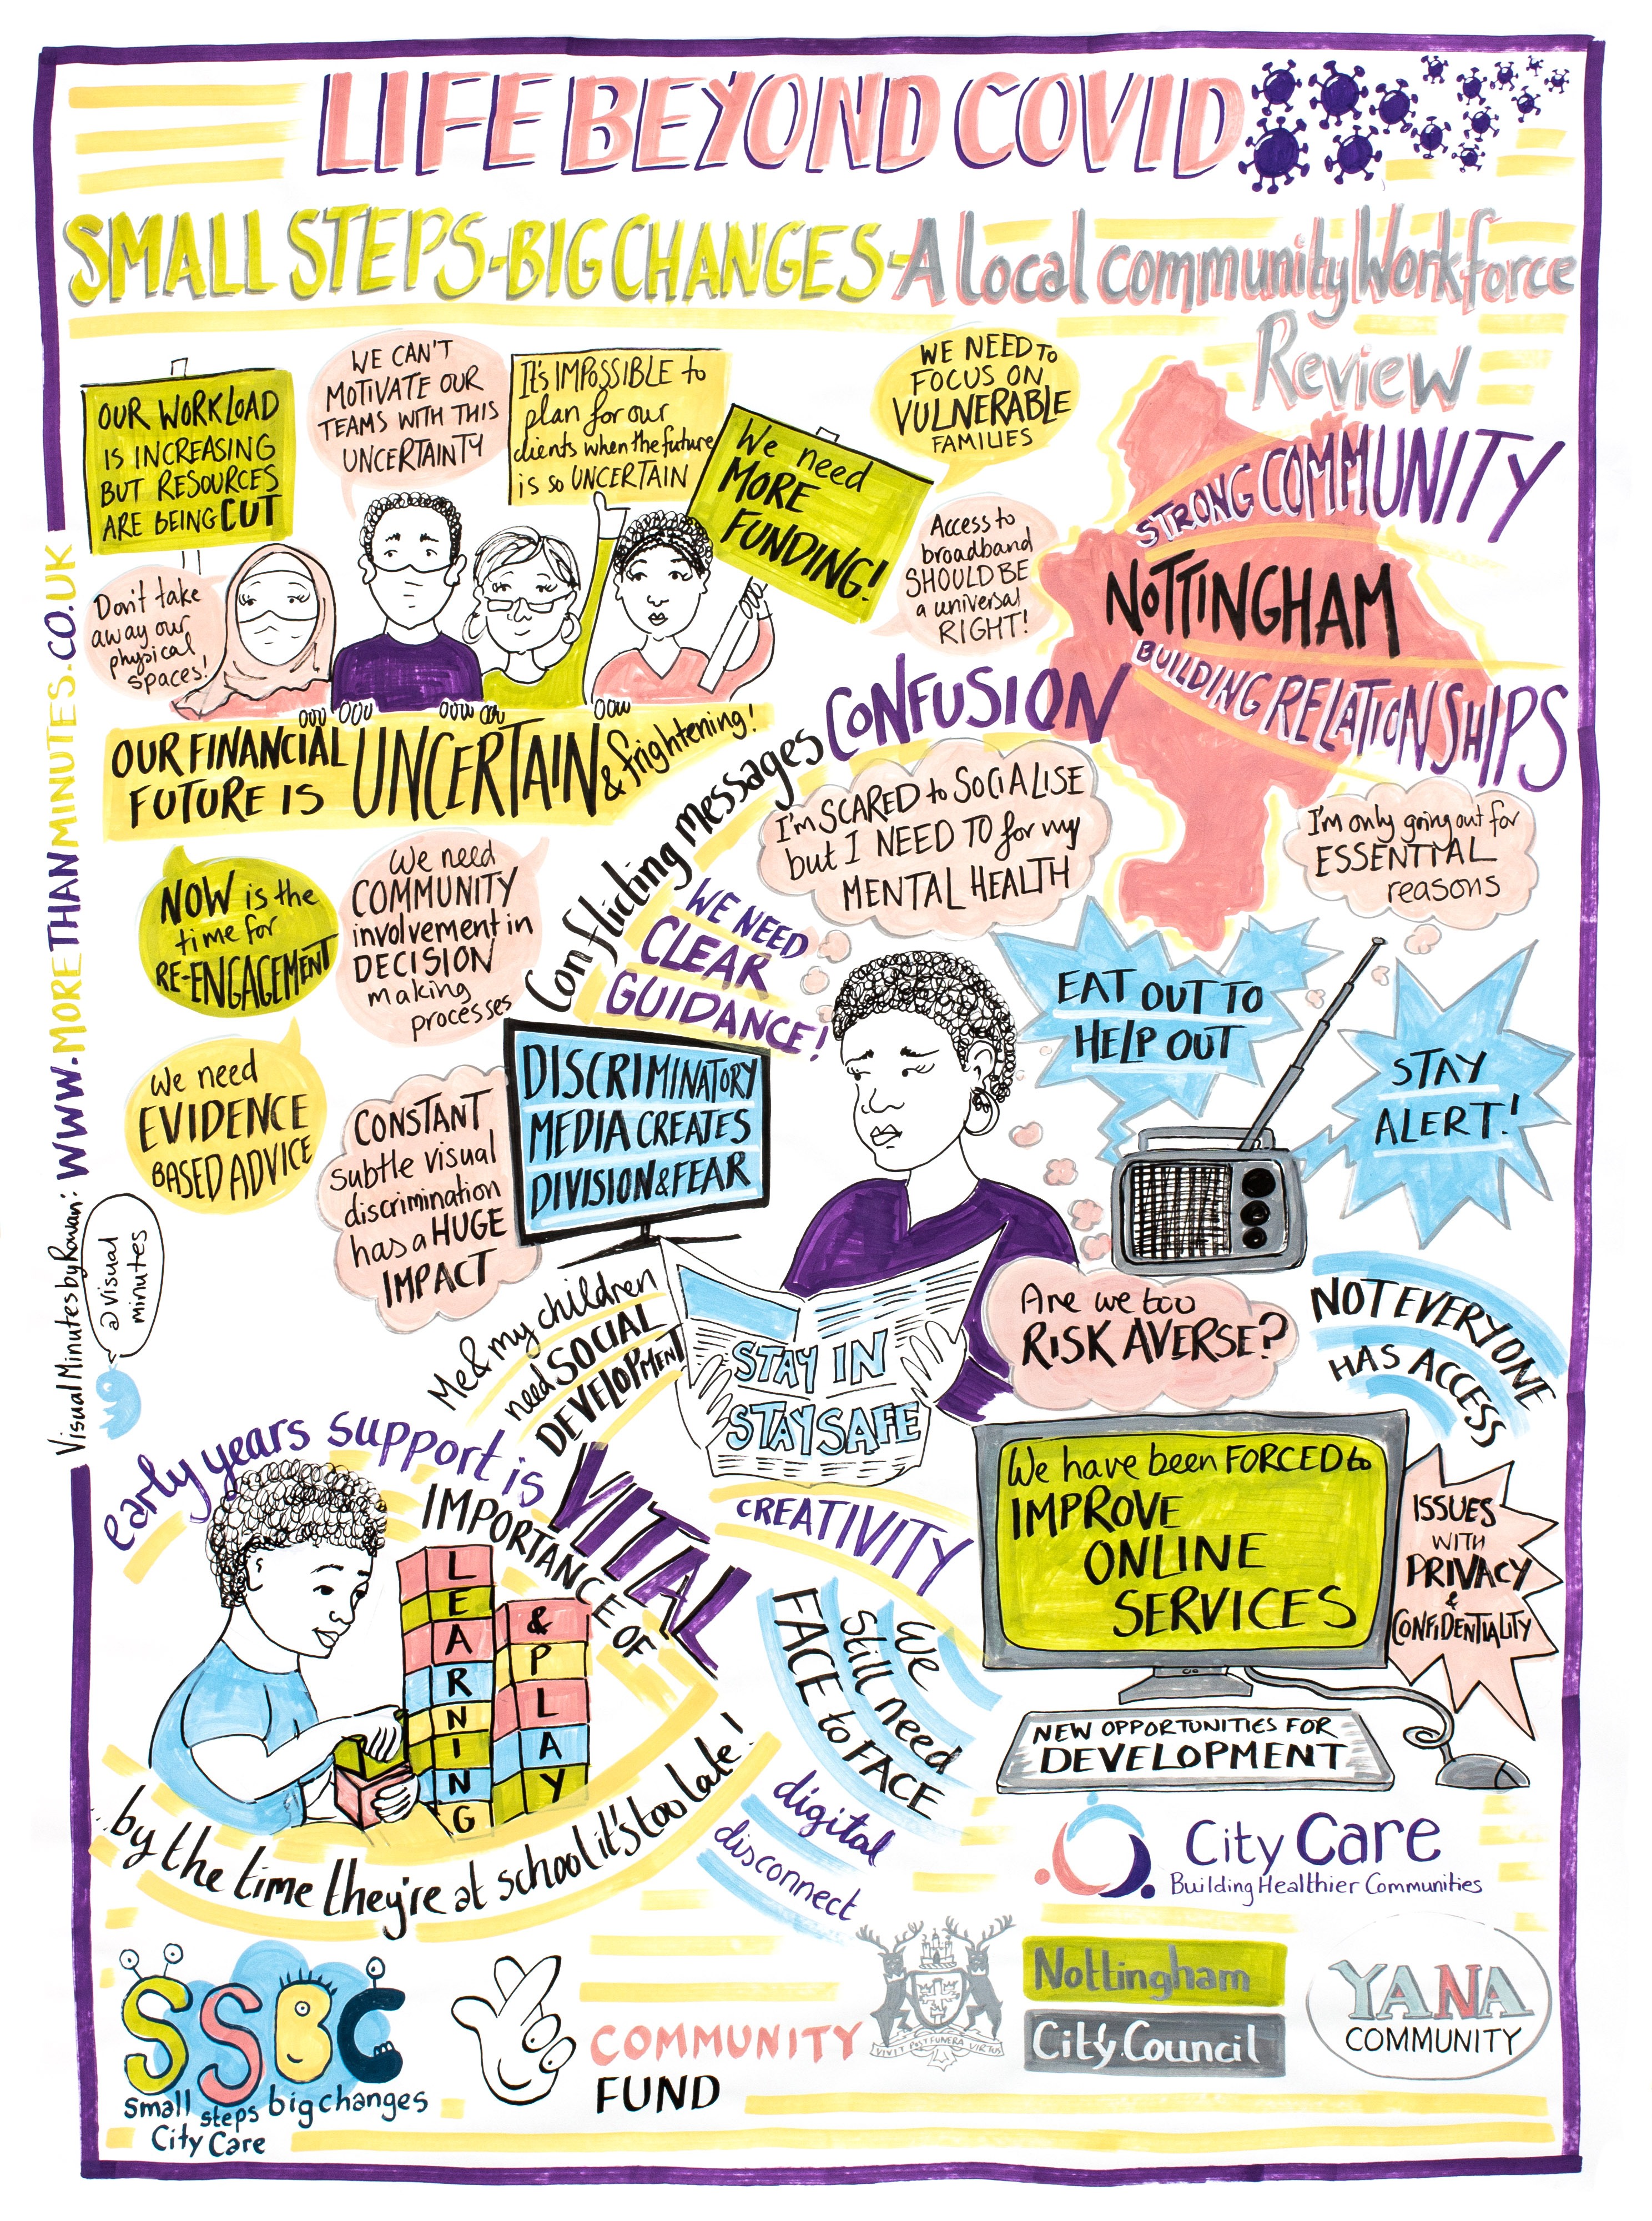 LIFE BEYOND COVID
SMALL STEPS-BIG CHANGES-A local community Workforce
Review
OUR WORKLOAD
IS INCREASING
BUT RESOURCES
ARE BEING CUT
WE CAN'T
MOTIVATE OUR
TEAMS WITH THIS
UNCERTAINTY
It's IMPOSSIBLE to
plan for our
clients when the future
is so UNCERTAIN
We need
MORE
FUNDING!
WE NEED TO
FOCUS ON
VULNERABLE
FAMILIES
Access to
broadband
SHOULD BE
a universal
RIGHT!
Don't take
away our
physical
spaces!
STRONG COMMUNITY
NOTTINGHAM
BUILDING RELATIONSHIPS
OUR FINANCIAL
FUTURE IS
UNCERTAIN
& frightening!
Conflicting messages
CONFUSION
WE NEED
CLEAR
GUIDANCE!
I'm SCARED to SOCIALISE
but I NEED TO for my
MENTAL HEALTH
I'm only going out for
ESSENTIAL
reasons
NOW is the
time for
RE-ENGAGEMENT
We need
COMMUNITY
involvement in
DECISION
making
processes
We need
EVIDENCE
BASED ADVICE
CONSTANT
subtle visual
discrimination
has a HUGE
IMPACT
DISCRIMINATORY
MEDIA CREATES
DIVISION & FEAR
EAT OUT TO
HELP OUT
STAY
ALERT!
STAY IN
STAY SAFE
Are we too
RISK AVERSE?
NOT EVERYONE
HAS ACCESS
Me & my children
need SOCIAL
DEVELOPMENT
early years support is
VITAL
IMPORTANCE OF
LEARNING
& PLAY
...by the time they're at school it's too late!
CREATIVITY
We
still need
FACE to FACE
digital
disconnect
We have been FORCED to
IMPROVE
ONLINE
SERVICES
ISSUES
WITH
PRIVACY
&
CONFIDENTIALITY
NEW OPPORTUNITIES FOR
DEVELOPMENT
Visual Minutes by Rowan: WWW.MORETHANMINUTES.CO.UK
@visual
minutes
City Care
Building Healthier Communities
SSBC
Small steps big changes
City Care
COMMUNITY
FUND
VIVIT POST FUNERA VIRTUS
Nottingham
City Council
YANA
COMMUNITY